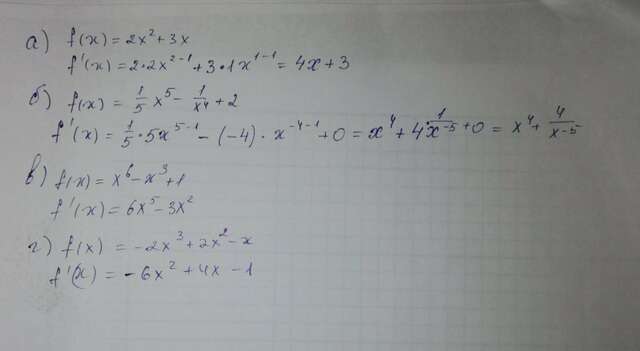 а) f(x) = 2x² + 3x
f'(x) = 2·2x²⁻¹ + 3·1x¹⁻¹ = 4x + 3
б) f(x) = 1/5 x⁵ - 1/x⁴ + 2
f'(x) = 1/5·5x⁵⁻¹ - (-4)·x⁻⁴⁻¹ + 0 = x⁴ + 4·1/x⁻⁵ + 0 = x⁴ + 4/x⁻⁵
в) f(x) = x⁶ - x³ + 1
f'(x) = 6x⁵ - 3x²
г) f(x) = -2x³ + 2x² - x
f'(x) = -6x² + 4x - 1